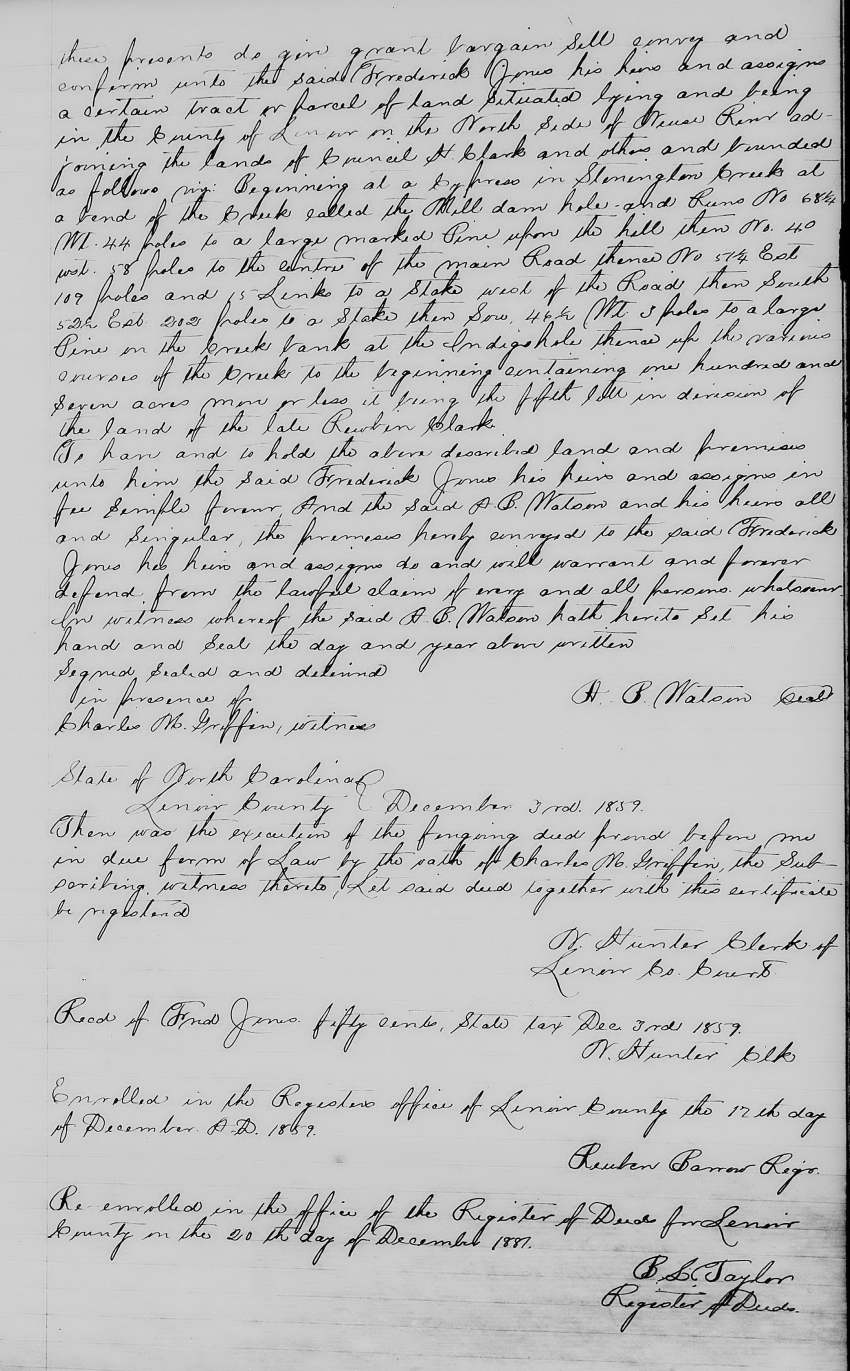 these presents do give grant bargain Sell convey and
confirm unto the said Frederick Jones his heirs and assigns
a certain tract or parcel of land Situated lying and being
in the County of Lenoir on the North Side of Neuse River ad-
joining the lands of Council H. Clark and others and bounded
as follows viz: Beginning at a Cypress in Stonington Creek at
a bend of the Creek called the Mill dam hole and Runs No 68¼
Wt. 44 poles to a large marked Pine upon the hill then No. 40
west. 58 poles to the centre of the main Road thence No 51¼ Est
109 poles and 15 Links to a Stake west of the Road then South
52½ Est. 202 poles to a Stake then Sou. 46½ Wt 3 poles to a large
Pine on the Creek bank at the Indigo hole thence up the various
courses of the Creek to the beginning containing one hundred and
Seven acres more or less it being the fifth lott in division of
the land of the late Rewbin Clark
To have and to hold the above described land and premises
unto him the Said Frederick Jones his heirs and assigns in
fee Simple forever, And the Said A. B. Watson and his heirs all
and Singular, the premises hereby conveyed to the said Frederick
Jones his heirs and assigns do and will warrant and forever
defend from the lawful claim of every and all persons whatsoever.
In witness whereof the said A. B. Watson hath hereto Set his
hand and Seal the day and year above written
Segned Sealed and delivered
in presence of
A. B. Watson Seal
Charles M. Griffin, witness
State of North Carolina
Lenoir County December 3rd. 1859.
Then was the execution of the forgoing deed proved before me
in due form of Law by the oath of Charles M. Griffin, the Sub-
scribing witness thereto, Let said deed together with this certificate
be registered
W. Hunter Clerk of
Lenoir Co. Court
Recd of Fred Jones fifty cents, State tax Dec. 3rd 1859.
W. Hunter Clk
Enrolled in the Registers office of Lenoir County the 17th day
of December A.D. 1859.
Reuben Barrow Regr.
Re-enrolled in the office of the Register of Deeds for Lenoir
County on the 20th day of December 1881.
B. L. Taylor
Register of Deeds.